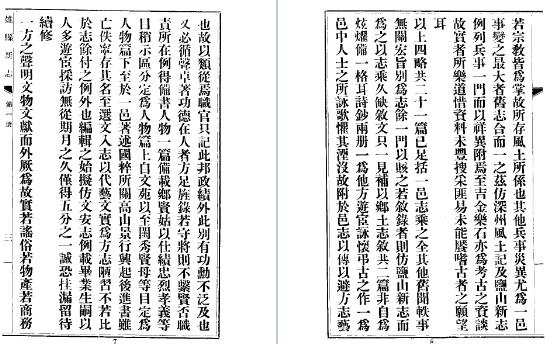 雄縣新志
第一册
三
也故以類從焉職官只記此邦政績外此別有功勳不泛及也
又必循聲卓著功德在人者方足旌錄若守將則不繫賢否職
責所在例得備書人物一篇備載鄉賢姑以仕績忠烈孝義等
目稍示區分定爲人物篇上自文苑以至閨秀賢母等目定爲
人物篇下至於一邑著述國粹所關高山景行興起後進書雖
亡佚寧存其名至選文入志以代藝文實爲方志陋習不若比
於志餘付之例外也編輯之始擬仿文安志例載畢業生嗣以
人多遊宦採訪無從期月之久僅得五分之一誠恐挂漏留待
續修
一方之聲明文物文獻而外厥爲故實若謠俗若物產若商務
7
若宗教皆爲掌故所存風土所係也其他兵事災異尤爲一邑
事變之最大者舊志合而一之茲仿深州風土記及鹽山新志
例列兵事一門而以祥異附焉至吉金樂石亦爲考古之資談
故實者所樂道惜資料未豐搜采匪易未能饜嗜古者之願望
耳
以上四略共二十一篇已足括一邑志乘之全其他舊聞軼事
無關宏旨別爲志餘一門以賅之若敘錄者則仿鹽山新志而
爲之志乘久缺敘文只一見補以鄉土志敘共二篇非自爲
炫燿備一格耳詩鈔兩册一爲他方宦游詠懷弔古之作一爲
邑中人士之所詠歌懼其湮沒故附於邑志以傳以避方志藝
8